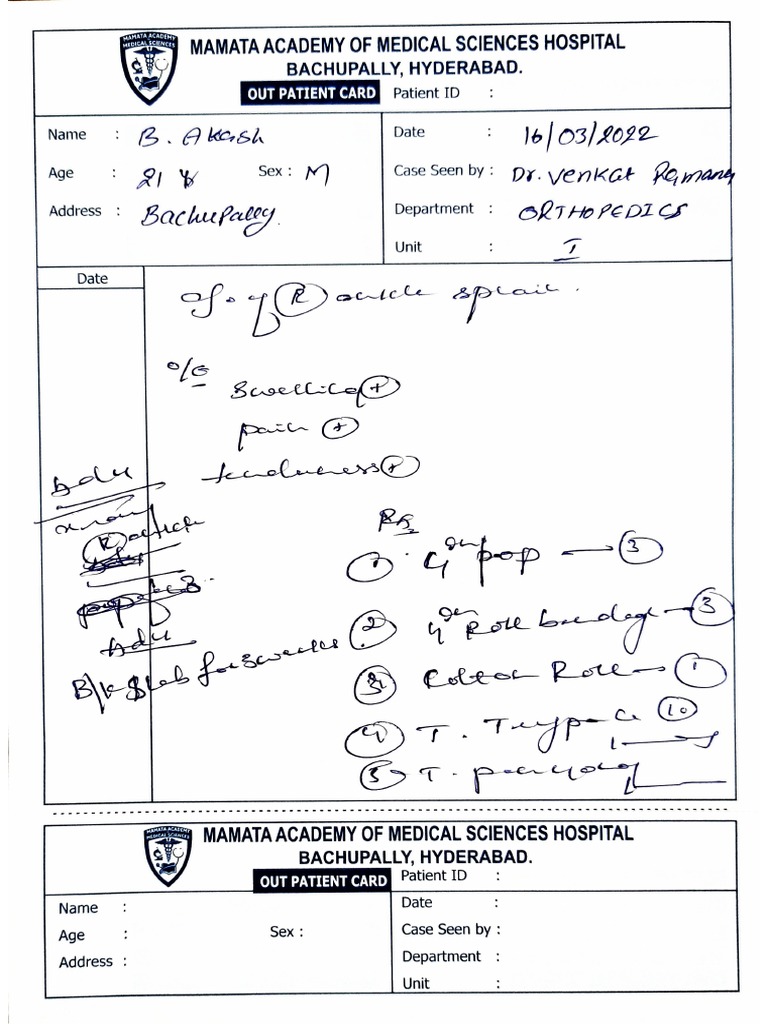 MAMATA ACADEMY
MEDICAL SCIENCES
MAMATA ACADEMY OF MEDICAL SCIENCES HOSPITAL
BACHUPALLY, HYDERABAD.
OUT PATIENT CARD Patient ID :
Name : B. Akash
Age : 21 Y Sex : M
Address : Bachupally
Date : 16/03/2022
Case Seen by : Dr. Venkat Ramana
Department : ORTHOPEDICS
Unit : I
Date
R ankle sprain.
o/e
Swelling +
pain +
tenderness +
Adv
x-ray
R ankle
Adv
B/k slab for 3 weeks
Rx
1 4" pop — 3
2 4" Roll bandage — 3
3 Cotton Roll — 1
4 T. 10
5 T.
MAMATA ACADEMY
MEDICAL SCIENCES
MAMATA ACADEMY OF MEDICAL SCIENCES HOSPITAL
BACHUPALLY, HYDERABAD.
OUT PATIENT CARD Patient ID :
Name :
Age : Sex :
Address :
Date :
Case Seen by :
Department :
Unit :